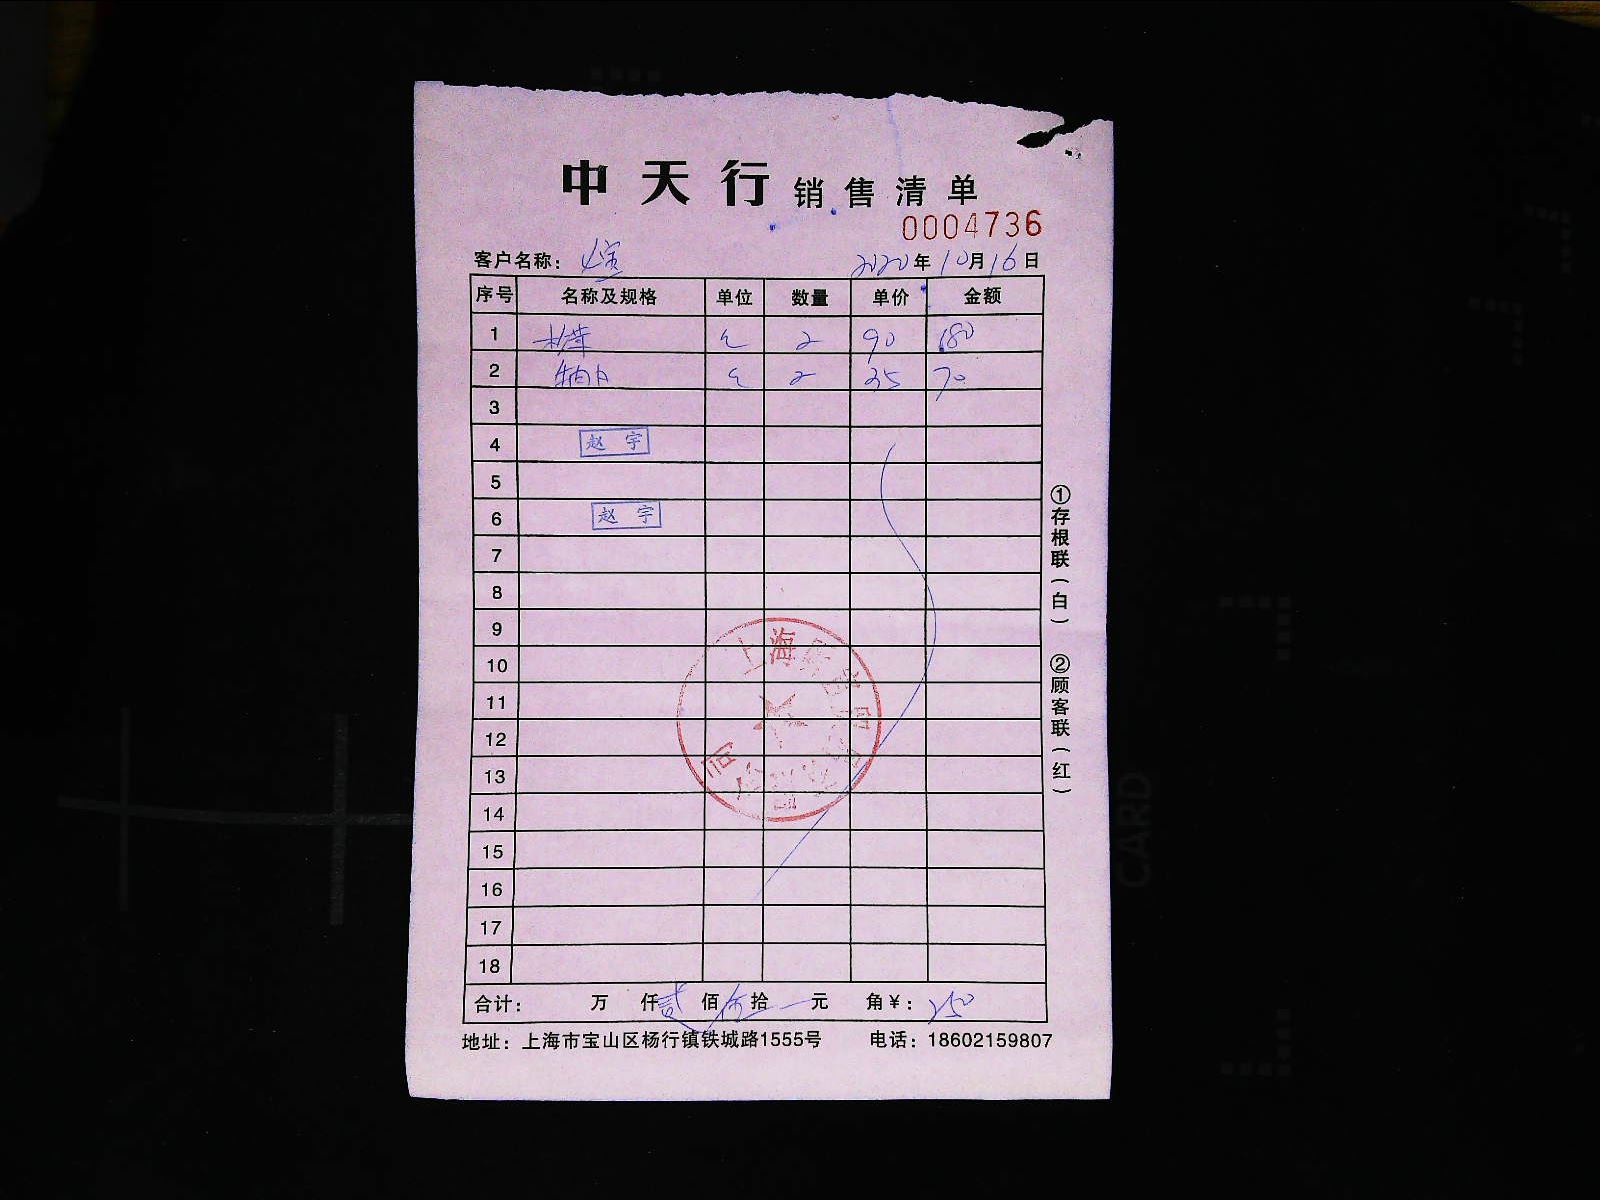 中天行 销售清单
0004736
客户名称：
2020年10月16日
序号 名称及规格 单位 数量 单价 金额
1 2 90 180
2 2 35 70
3
4 赵宇
5
6 赵宇
7
8
9
10
11
12
13
14
15
16
17
18
上海
司
合计： 万 仟贰佰伍拾 元 角￥：250
地址：上海市宝山区杨行镇铁城路1555号 电话：18602159807
①存根联（白） ②顾客联（红）
CARD